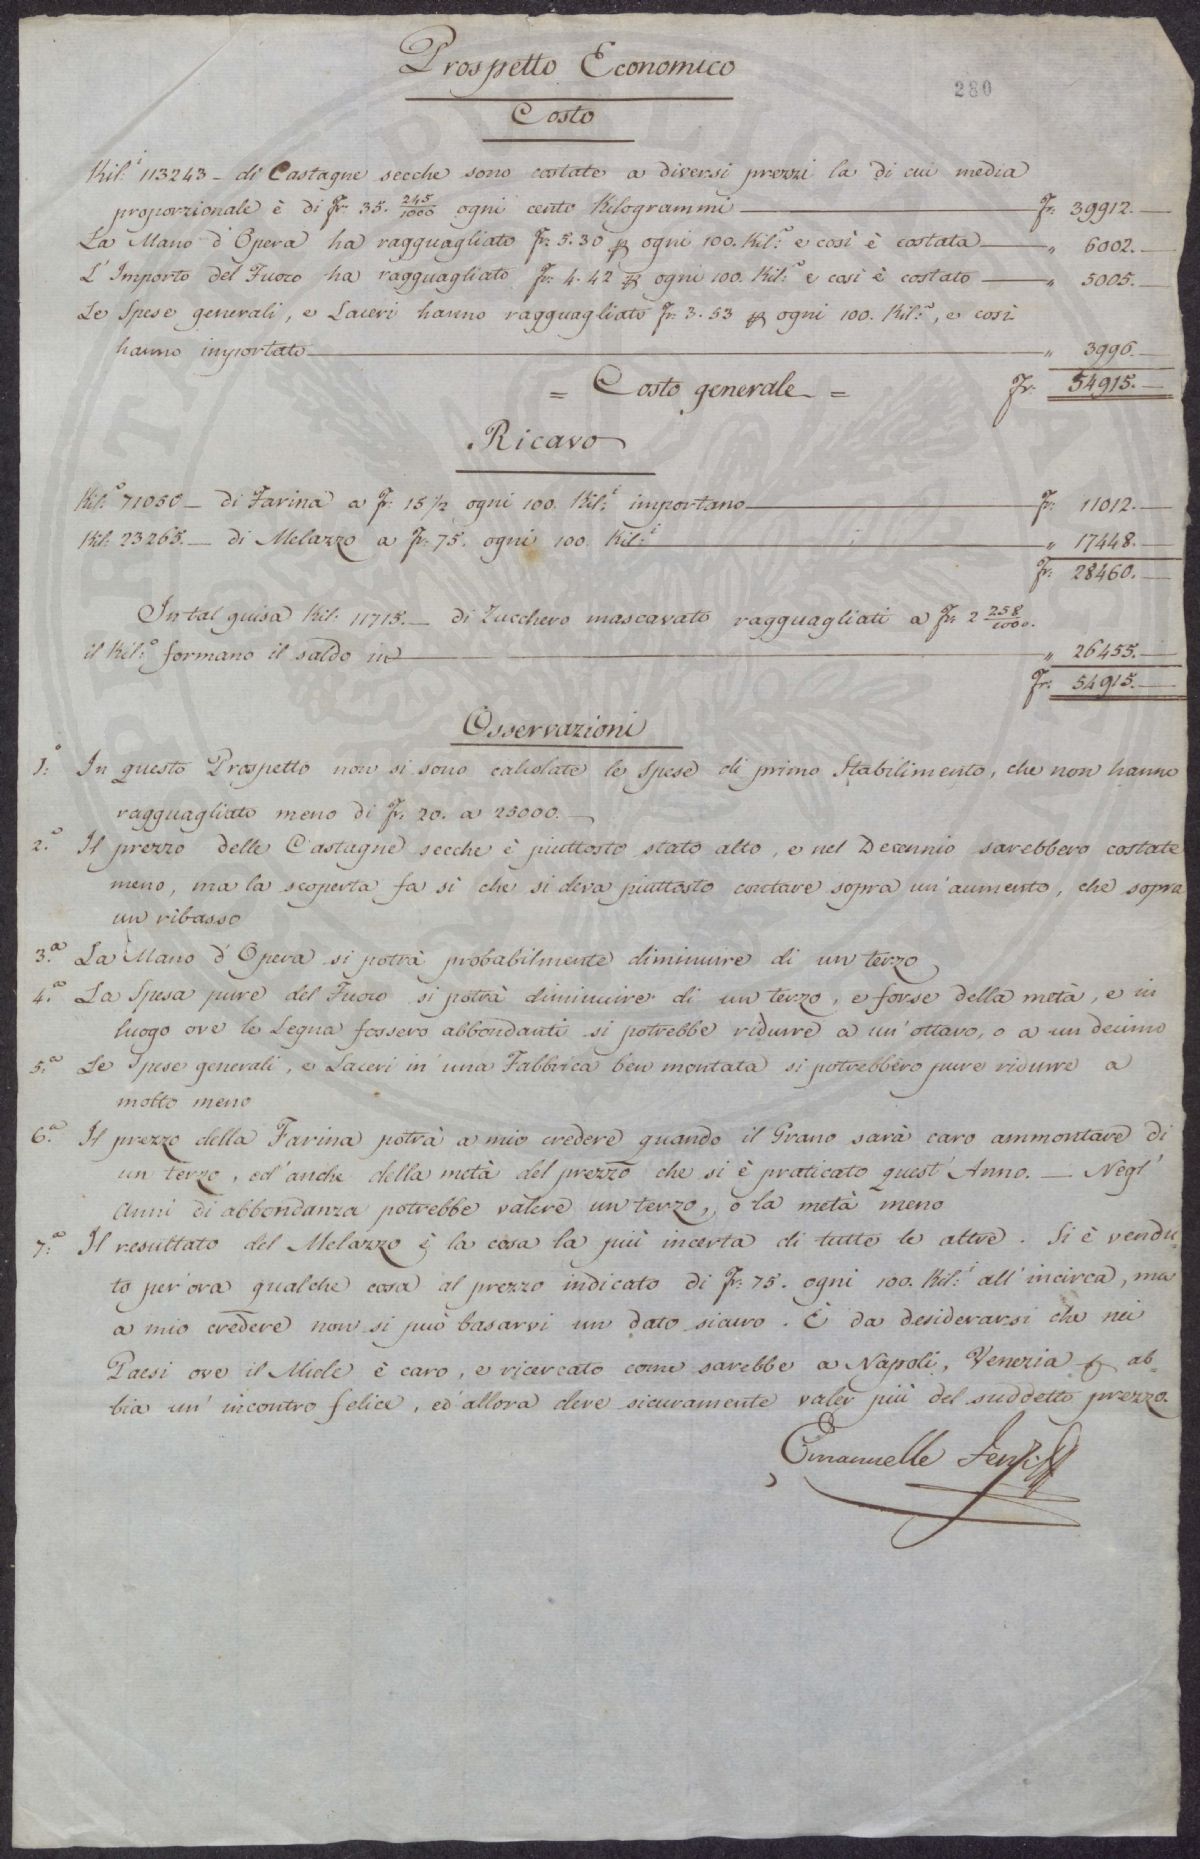 Prospetto Economico
280
Costo
Kil.i 113243 _ di Castagne secche sono costate a diversi prezzi la di cui media
proporzionale è di fr. 35. 245/1000 ogni cento Kilogrammi fr. 39912. _
La Mano d'Opera ha ragguagliato fr. 5.30 ogni 100. Kil.i e così è costata " 6002. _
L'Importo del Fuoco ha ragguagliato fr. 4.42 ogni 100. Kil.i e così è costato " 5005. _
Le Spese generali, e Laceri hanno ragguagliato fr. 3.53 ogni 100. Kil.i, e così
hanno importato " 3996. _
= Costo generale = fr. 54915. _
Ricavo
Kil.i 71050 _ di Farina a fr. 15 1/2 ogni 100. Kil.i importano fr. 11012. _
Kil. 23265. _ di Melazzo a fr. 75. ogni 100. Kil.i " 17448. _
fr. 28460. _
In tal guisa Kil. 11715. _ di Zucchero mascavato ragguagliati a fr. 2 258/1000.
il Kil.o formano il saldo in " 26455. _
fr. 54915. _
Osservazioni
1.o In questo Prospetto non si sono calcolate le Spese di primo Stabilimento, che non hanno
ragguagliato meno di fr. 20. a 25000. _
2.o Il prezzo delle Castagne secche è piuttosto stato alto, e nel Decennio sarebbero costate
meno, ma la scoperta fa sì che si deva piuttosto contare sopra un'aumento, che sopra
un ribasso
3.a La Mano d'Opera si potrà probabilmente diminuire di un terzo
4.a La Spesa pure del Fuoco si potrà diminuire di un terzo, e forse della metà, e in
luogo ove le Legna fossero abbondanti si potrebbe ridurre a un'ottavo, o a un decimo
5.a Le Spese generali, e Laceri in una Fabbrica ben montata si potrebbero pure ridurre a
molto meno
6.a Il prezzo della Farina potrà a mio credere quando il Grano sarà caro ammontare di
un terzo, ed'anche della metà del prezzo che si è praticato quest'Anno. _ Negl'
Anni di abbondanza potrebbe valere un terzo, o la metà meno
7.a Il resultato del Melazzo è la cosa la più incerta di tutte le altre. Si è vendu-
to per ora qualche cosa al prezzo indicato di fr. 75. ogni 100. Kil.i all'incirca, ma
a mio credere non si può basarvi un dato sicuro. È da desiderarsi che nei
Paesi ove il Miele è caro, e ricercato come sarebbe a Napoli, Venezia & ab-
bia un'incontro felice, ed'allora deve sicuramente valer più del suddetto prezzo.
Emanuelle